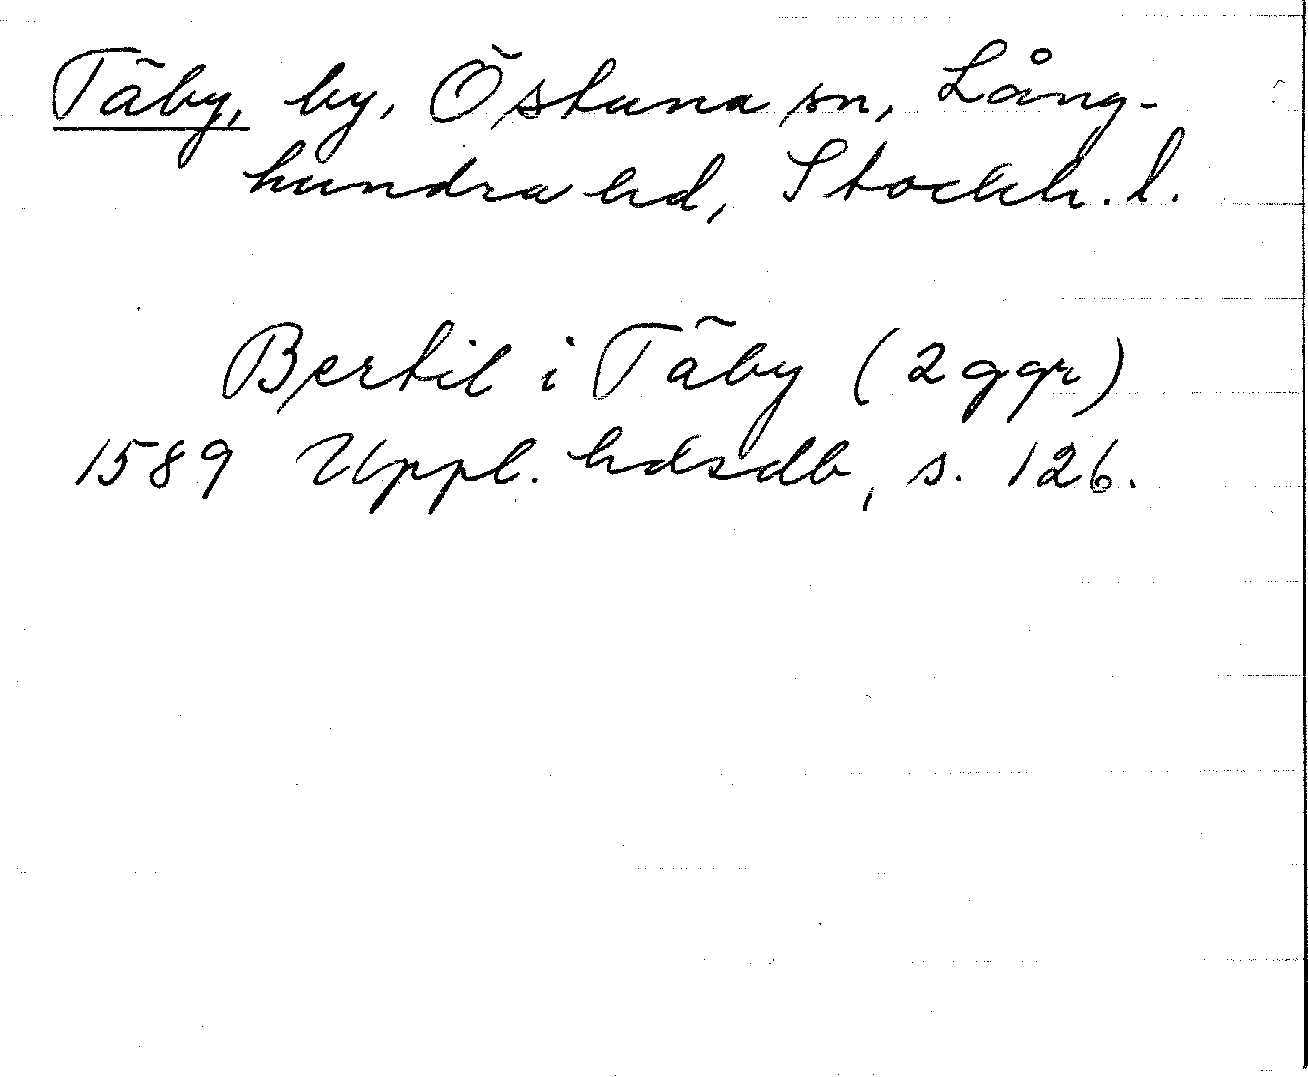 Täby, by, Östuna sn, Lång-
hundra hd, Stockh. l.
Bertil i Täby (2 ggr)
1589 Uppl. hdsdb, s. 126.